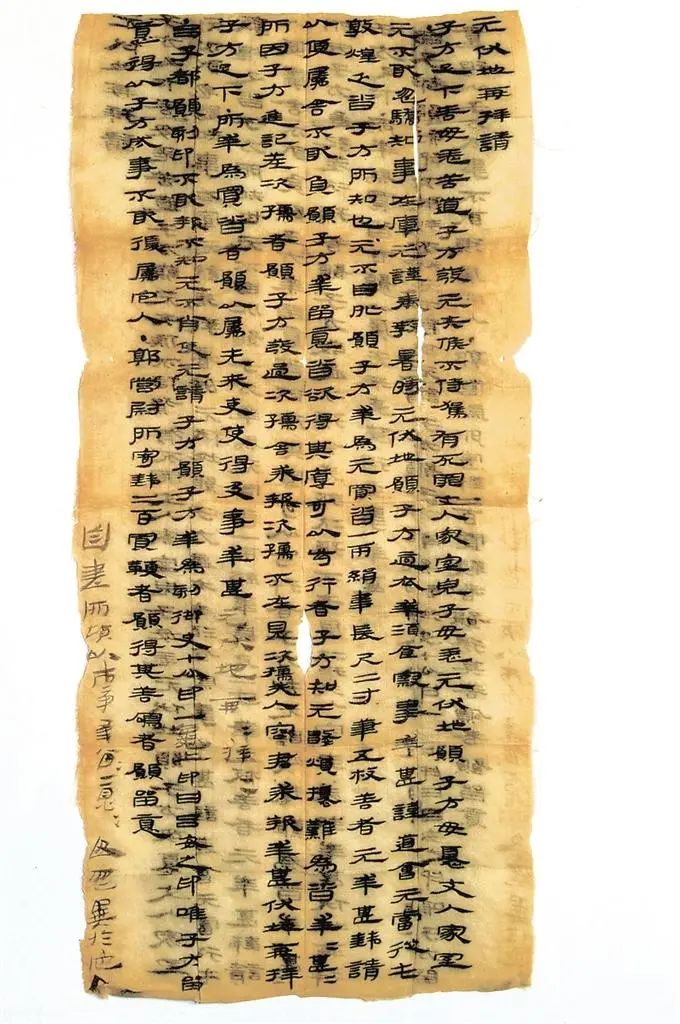 元伏地再拜請
子方足下善毋恙苦道子方發元失候不侍駕有死罪丈人家室兒子毋恙元伏地願子方毋憂丈人家室
元不敢忽驕知事在庫元謹奉教暑時元伏地願子方適衣幸酒食察事幸甚謹道會元當從屯
敦煌乏沓子方所知也元不自外願子方幸爲元買沓一兩絹韋長尺二寸筆五枚善者元幸甚錢請
以便屬舍不敢負願子方幸留意沓欲得其厚可以步行者子方知元數煩擾難爲沓幸=甚=
所因子方進記差次孺者願子方發過次孺舍求報次孺不在見次孺夫人容君求報幸甚伏地再拜
子方足下所幸爲買沓者願以屬先來吏使得及事幸甚元伏地再=拜=
呂子都願刻印不敢報不知元不肖使元請子方願子方幸爲刻御史七分印一龜上印曰呂安之印唯子方留
意得以子方成事不敢復屬它人·郭營尉所寄錢二百買鞭者願得其善鳴者願留意
自書所願以市事幸留=意=毋忽異於它人